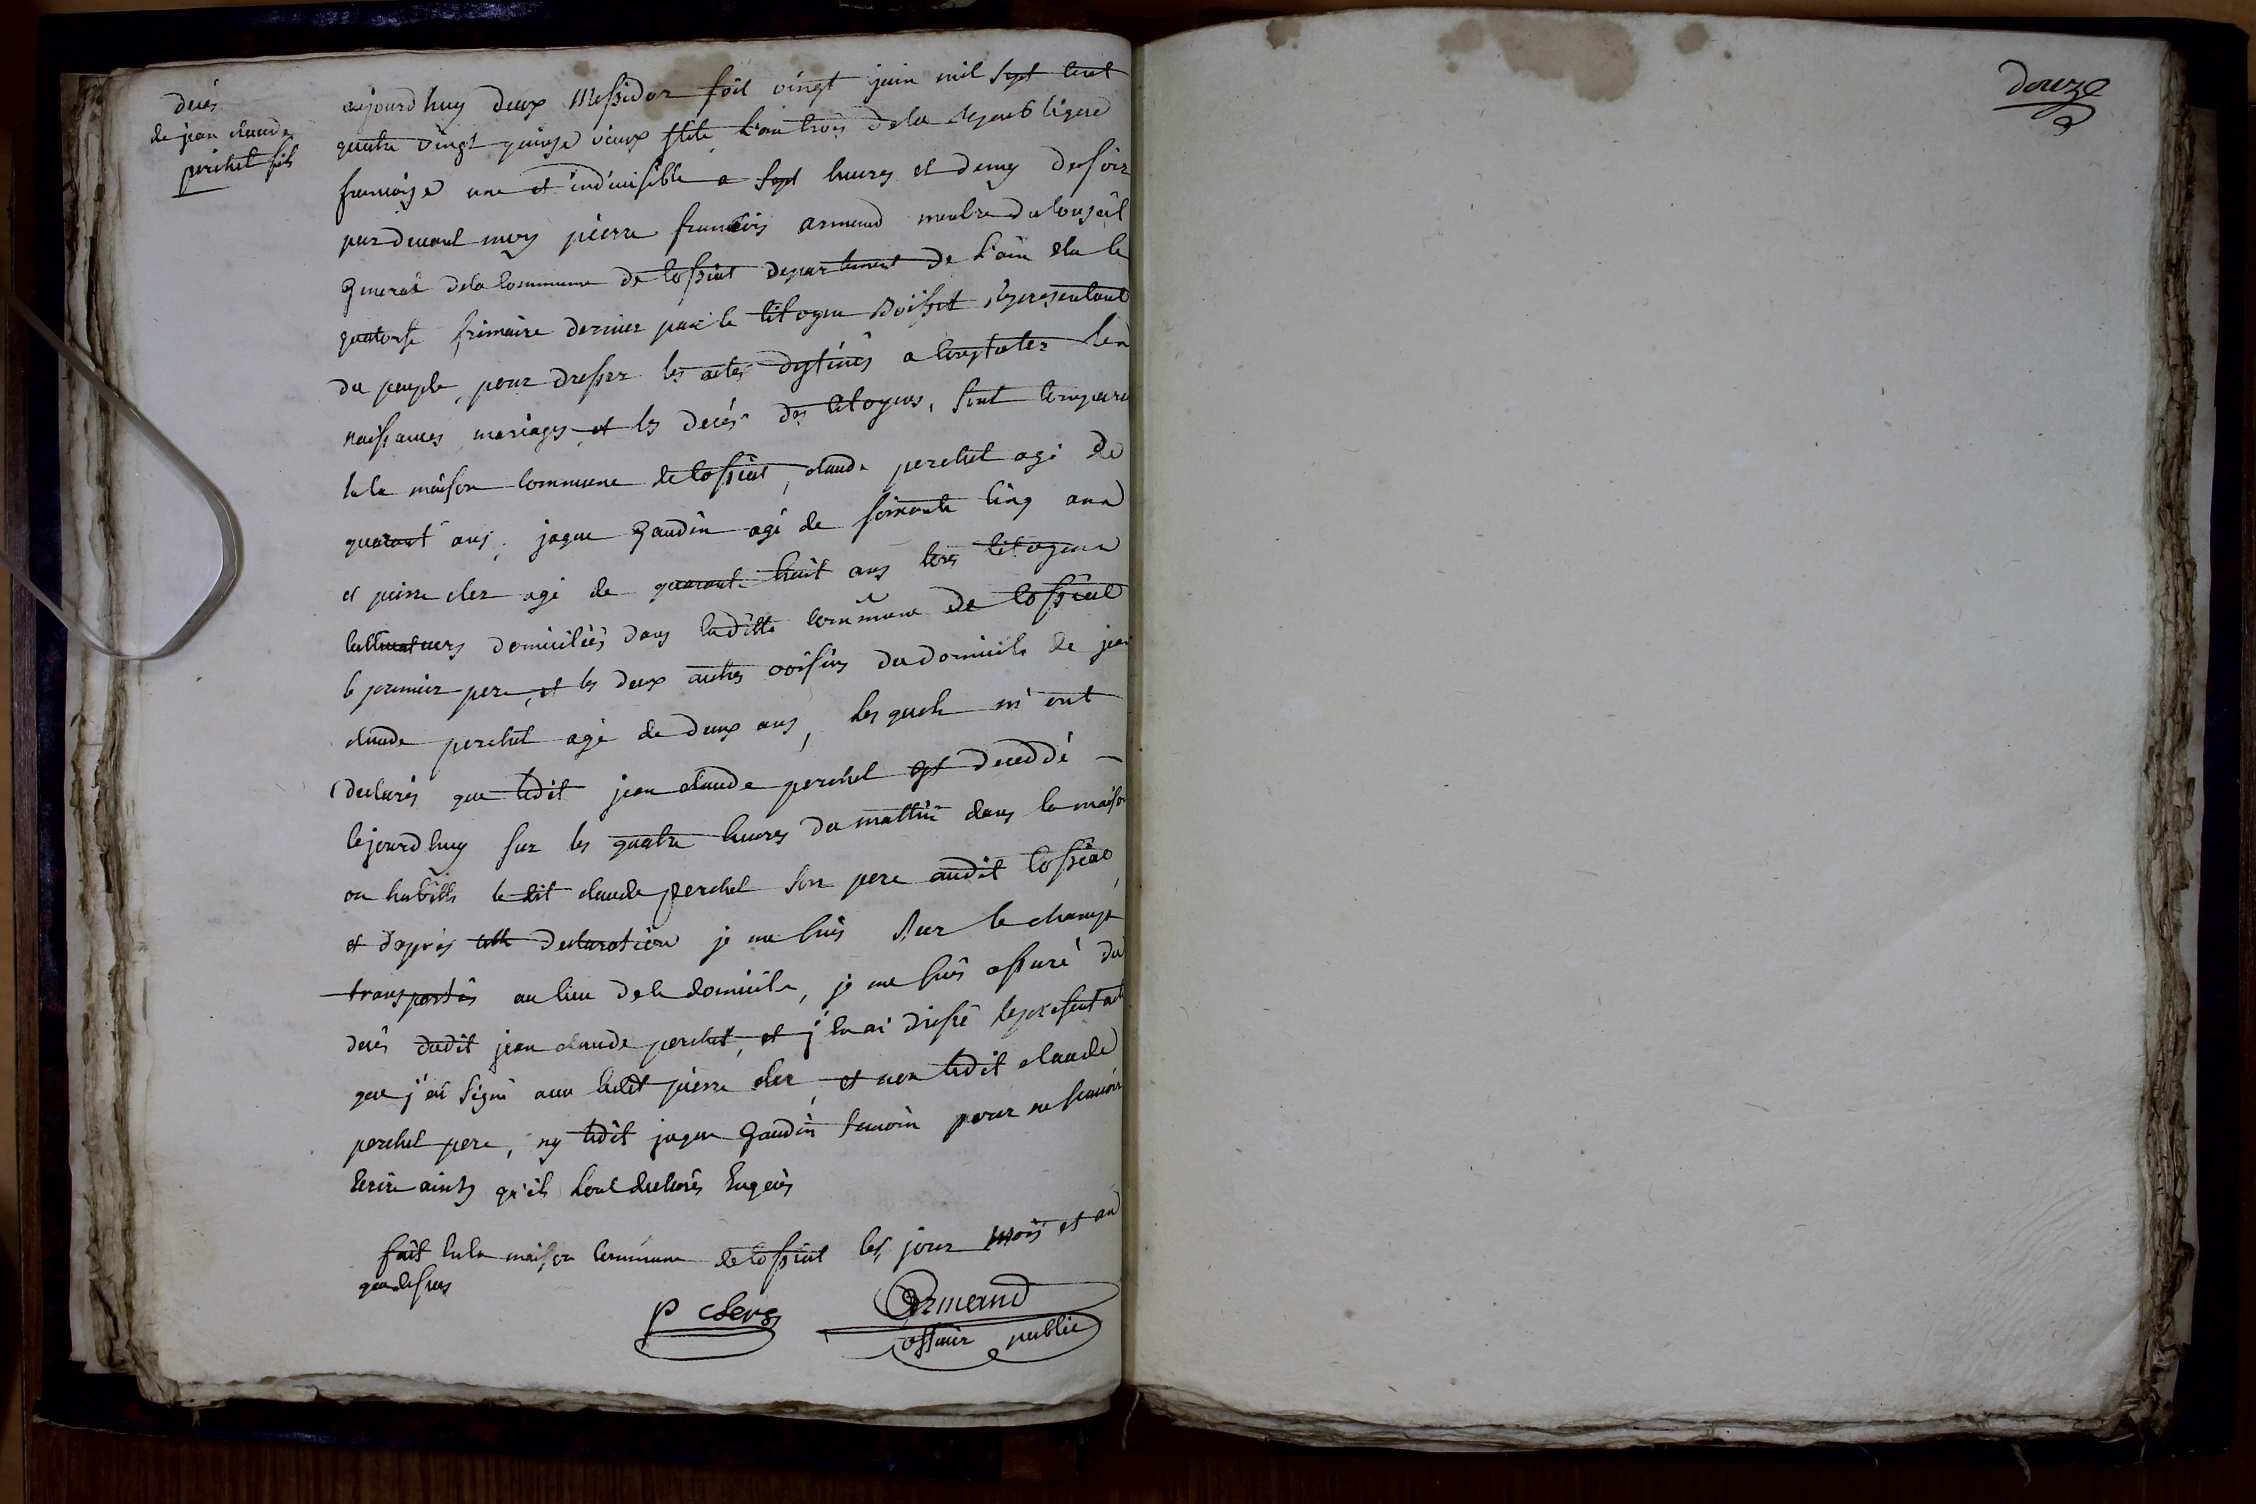 decés
de jean claude
perchet fils
aujourdhuy deux Messidor soit vingt juin mil sept cent
quatre vingt quinze vieux stile, l'an trois de la republique
francaise une et indivisible a sept heures et demy de soir
par devant moy pierre francois armand membre du conseil
general de la commune de cossiat departement de l'ain elu le
quatorse frimaire dernier par le citoyen Boisset representant
du peuple, pour dresser les actes destinés a constater les
naissances, mariages et les decés des citoyens, sont comparu
en la maison commune de cossiat, claude perchet agé de
quarant ans, jaque Gaudin agé de soixante cinq ans
et pierre clez agé de quarante huit ans tous citoyens
cultivateurs domiciliés dans laditte commune de cossiat
le premier pere, et les deux autres voisins du domicile de jean
claude perchet agé de deux ans, lesquels m'ont
declarés que ledit jean claude perchet est deceddé
cejourdhuy sur les quatre heures du mattin dans la maison
ou habitte le dit claude perchet son pere audit cossiat
et d'apprés cette declaration je me suis sur le champ
transportés au lieu de le domicile, je me suis assuré du
decés dudit jean claude perchet, et j'en ai dressé le present acte
que j'ai signé avec ledit pierre clez, et non ledit claude
perchet pere, ny ledit jaque Gaudin temoin pour ne scavoir
ecrire ainsy qu'ils l'ont declarés enquis
fait en la maison commune de cossiat les jour mois et an
que dessus
p clerz Armand
officier public
douze